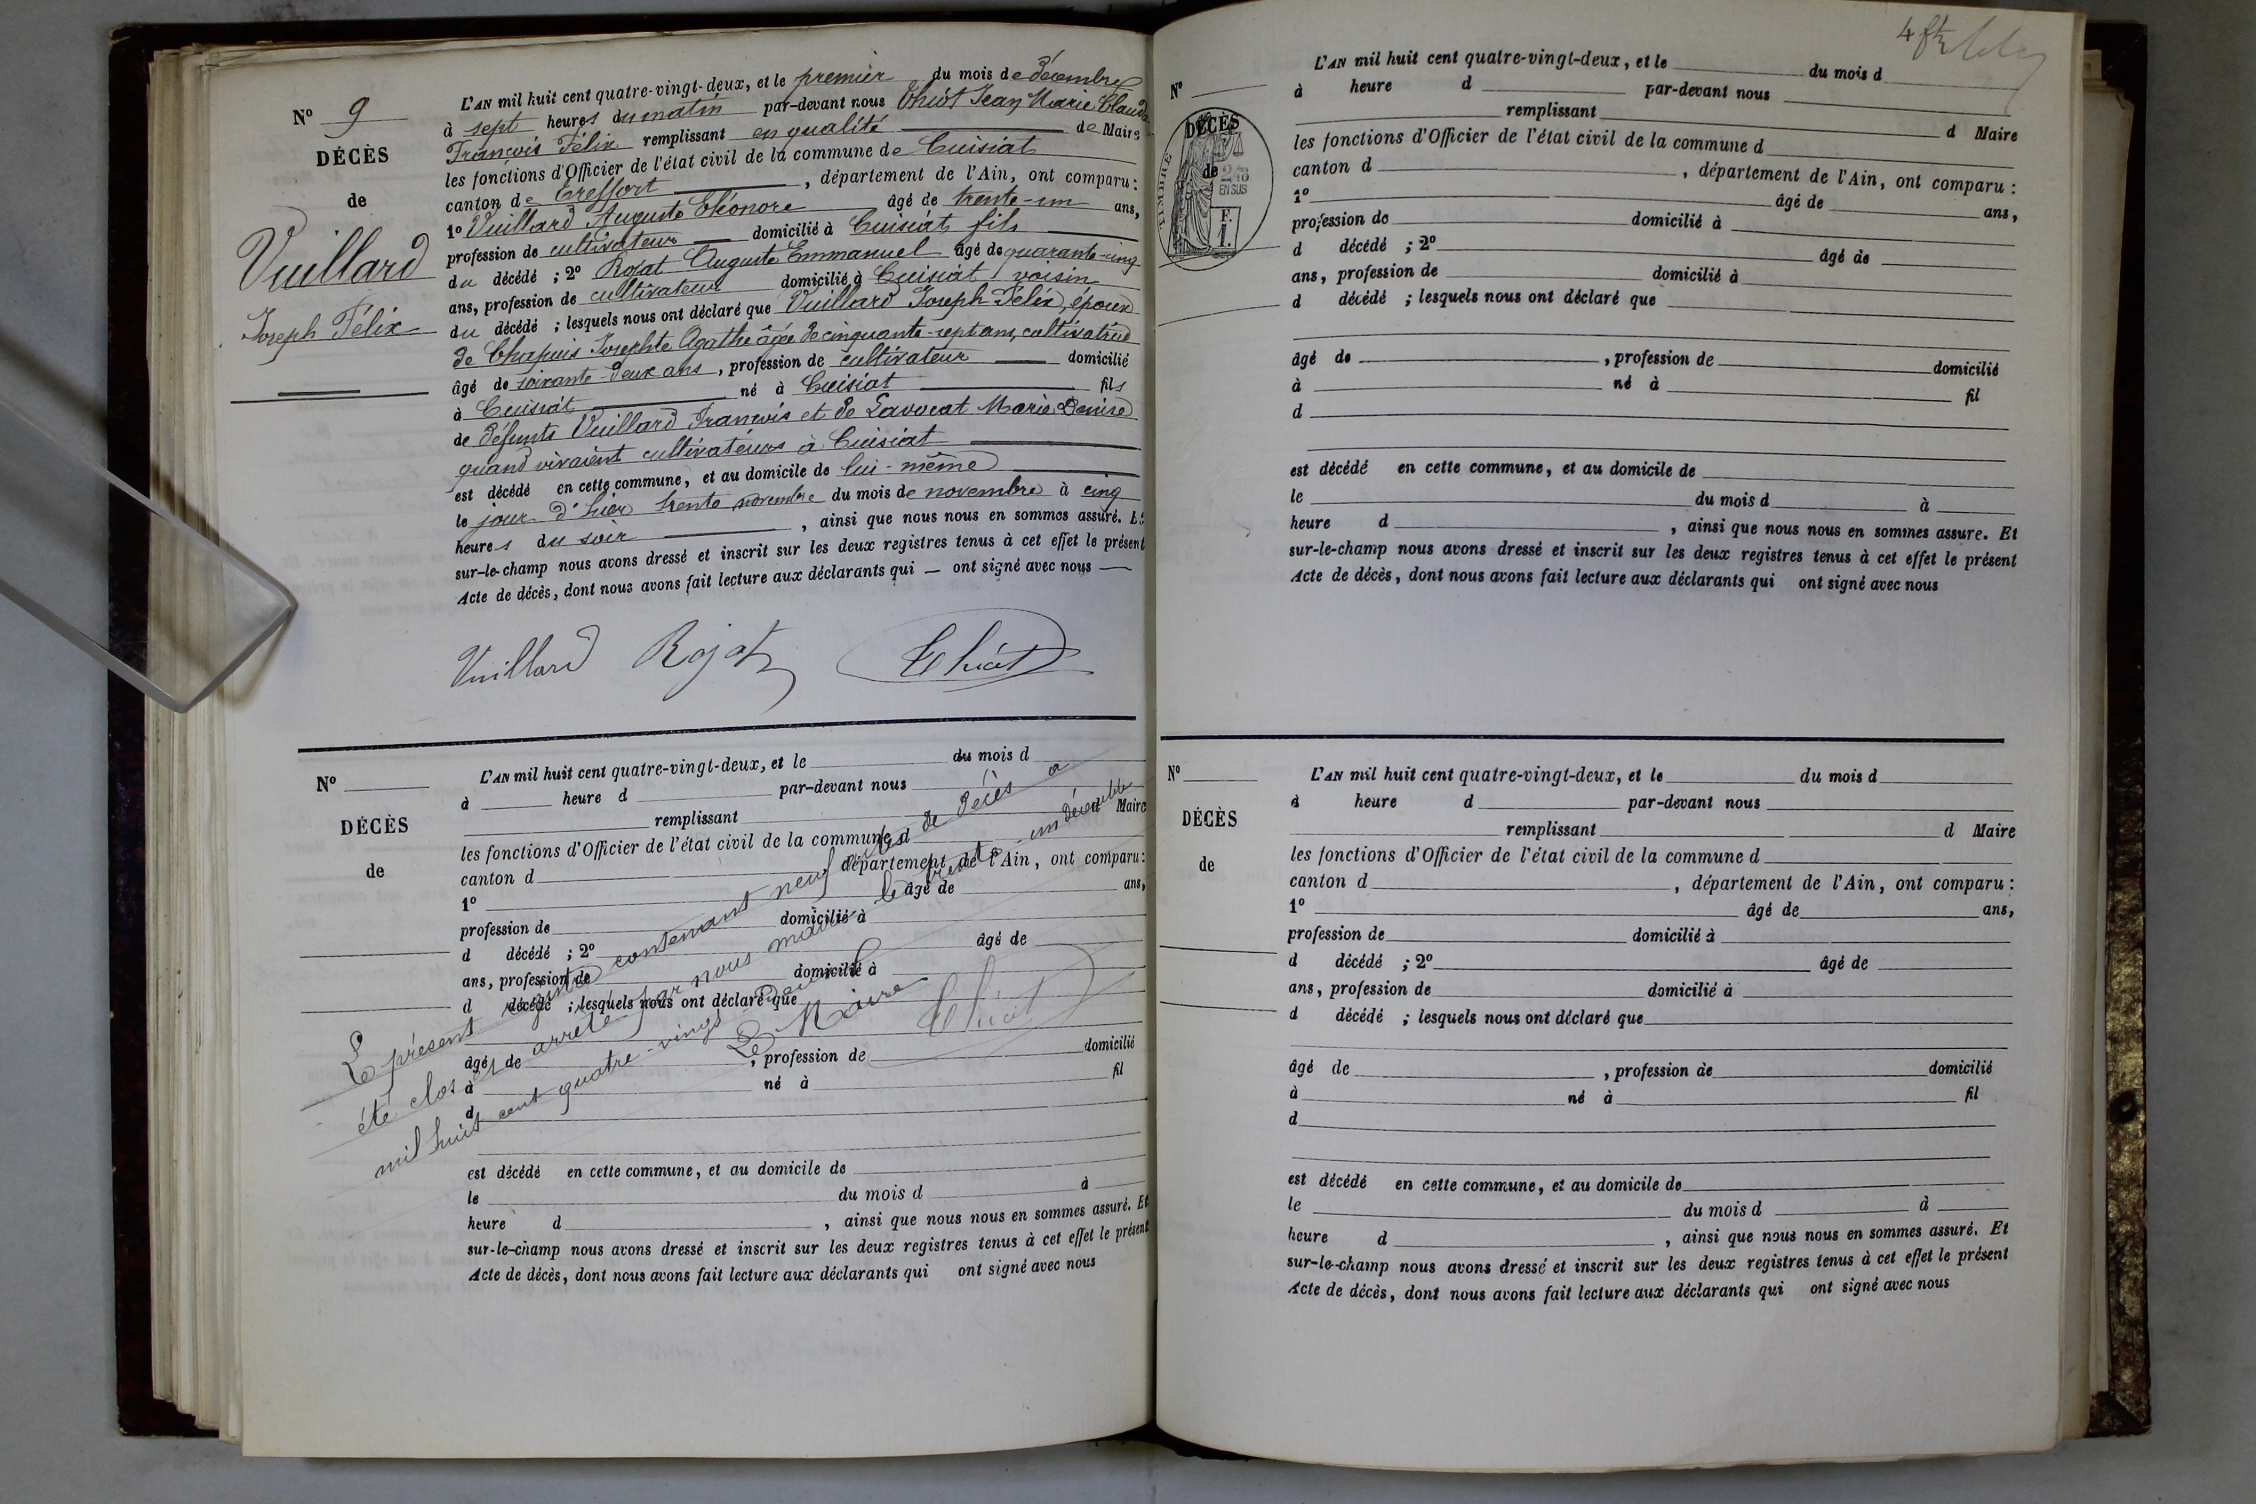 N° 9
DÉCÈS
de
Vuillard
Joseph Félix
L'AN mil huit cent quatre-vingt-deux, et le premier du mois de Décembre
à sept heures du matin par-devant nous Chiot Jean Marie Claude
François Félix remplissant en qualité de Maire
les fonctions d'Officier de l'état civil de la commune de Cuisiat
canton de Treffort, département de l'Ain, ont comparu:
1° Vuillard Auguste Eléonore âgé de trente-un ans,
profession de cultivateur domicilié à Cuisiat fils
du décédé ; 2° Rojat Auguste Emmanuel âgé de quarante-cinq
ans, profession de cultivateur domicilié à Cuisiat voisin
du décédé ; lesquels nous ont déclaré que Vuillard Joseph Félix, époux
de Chapuis Josephte Agathe âgée de cinquante-sept ans, cultivatrice
âgé de soixante-deux ans, profession de cultivateur domicilié
à Cuisiat né à Cuisiat fils
de défunts Vuillard François et de Lavocat Marie Denise
quand vivaient cultivateurs à Cuisiat
est décédé en cette commune, et au domicile de lui-même
le jour d'hier trente novembre du mois de novembre à cinq
heures du soir, ainsi que nous nous en sommes assuré. Et
sur-le-champ nous avons dressé et inscrit sur les deux registres tenus à cet effet le présent
Acte de décès, dont nous avons fait lecture aux déclarants qui — ont signé avec nous —
Vuillard Rojat Chiot
N°
DÉCÈS
de
L'AN mil huit cent quatre-vingt-deux, et le du mois d
à heure d par-devant nous
remplissant d Maire
les fonctions d'Officier de l'état civil de la commune d
canton d département de l'Ain, ont comparu:
1° âgé de ans,
profession de domicilié à
d décédé ; 2° âgé de
ans, profession de domicilié à
d décédé ; lesquels nous ont déclaré que
âgé de , profession de domicilié
à né à fil
d
est décédé en cette commune, et au domicile de
le du mois d à
heure d , ainsi que nous nous en sommes assuré. Et
sur-le-champ nous avons dressé et inscrit sur les deux registres tenus à cet effet le présent
Acte de décès, dont nous avons fait lecture aux déclarants qui ont signé avec nous
Le présent registre contenant neuf actes de décès a
été clos et arrêté par nous maire le trente un décembre
mil huit cent quatre-vingt-deux
Le Maire
Chiot
N°
DÉCÈS
de
TIMBRE
EN SUS
L'AN mil huit cent quatre-vingt-deux, et le du mois d
à heure d par-devant nous
remplissant d Maire
les fonctions d'Officier de l'état civil de la commune d
canton d , département de l'Ain, ont comparu :
1° âgé de ans,
profession de domicilié à
d décédé ; 2° âgé de
ans, profession de domicilié à
d décédé ; lesquels nous ont déclaré que
âgé de , profession de domicilié
à né à fil
d
est décédé en cette commune, et au domicile de
le du mois d à
heure d , ainsi que nous nous en sommes assuré. Et
sur-le-champ nous avons dressé et inscrit sur les deux registres tenus à cet effet le présent
Acte de décès, dont nous avons fait lecture aux déclarants qui ont signé avec nous
N°
DÉCÈS
de
L'AN mil huit cent quatre-vingt-deux, et le du mois d
à heure d par-devant nous
remplissant d Maire
les fonctions d'Officier de l'état civil de la commune d
canton d , département de l'Ain, ont comparu :
1° âgé de ans,
profession de domicilié à
d décédé ; 2° âgé de
ans, profession de domicilié à
d décédé ; lesquels nous ont déclaré que
âgé de , profession de domicilié
à né à fil
d
est décédé en cette commune, et au domicile de
le du mois d à
heure d , ainsi que nous nous en sommes assuré. Et
sur-le-champ nous avons dressé et inscrit sur les deux registres tenus à cet effet le présent
Acte de décès, dont nous avons fait lecture aux déclarants qui ont signé avec nous